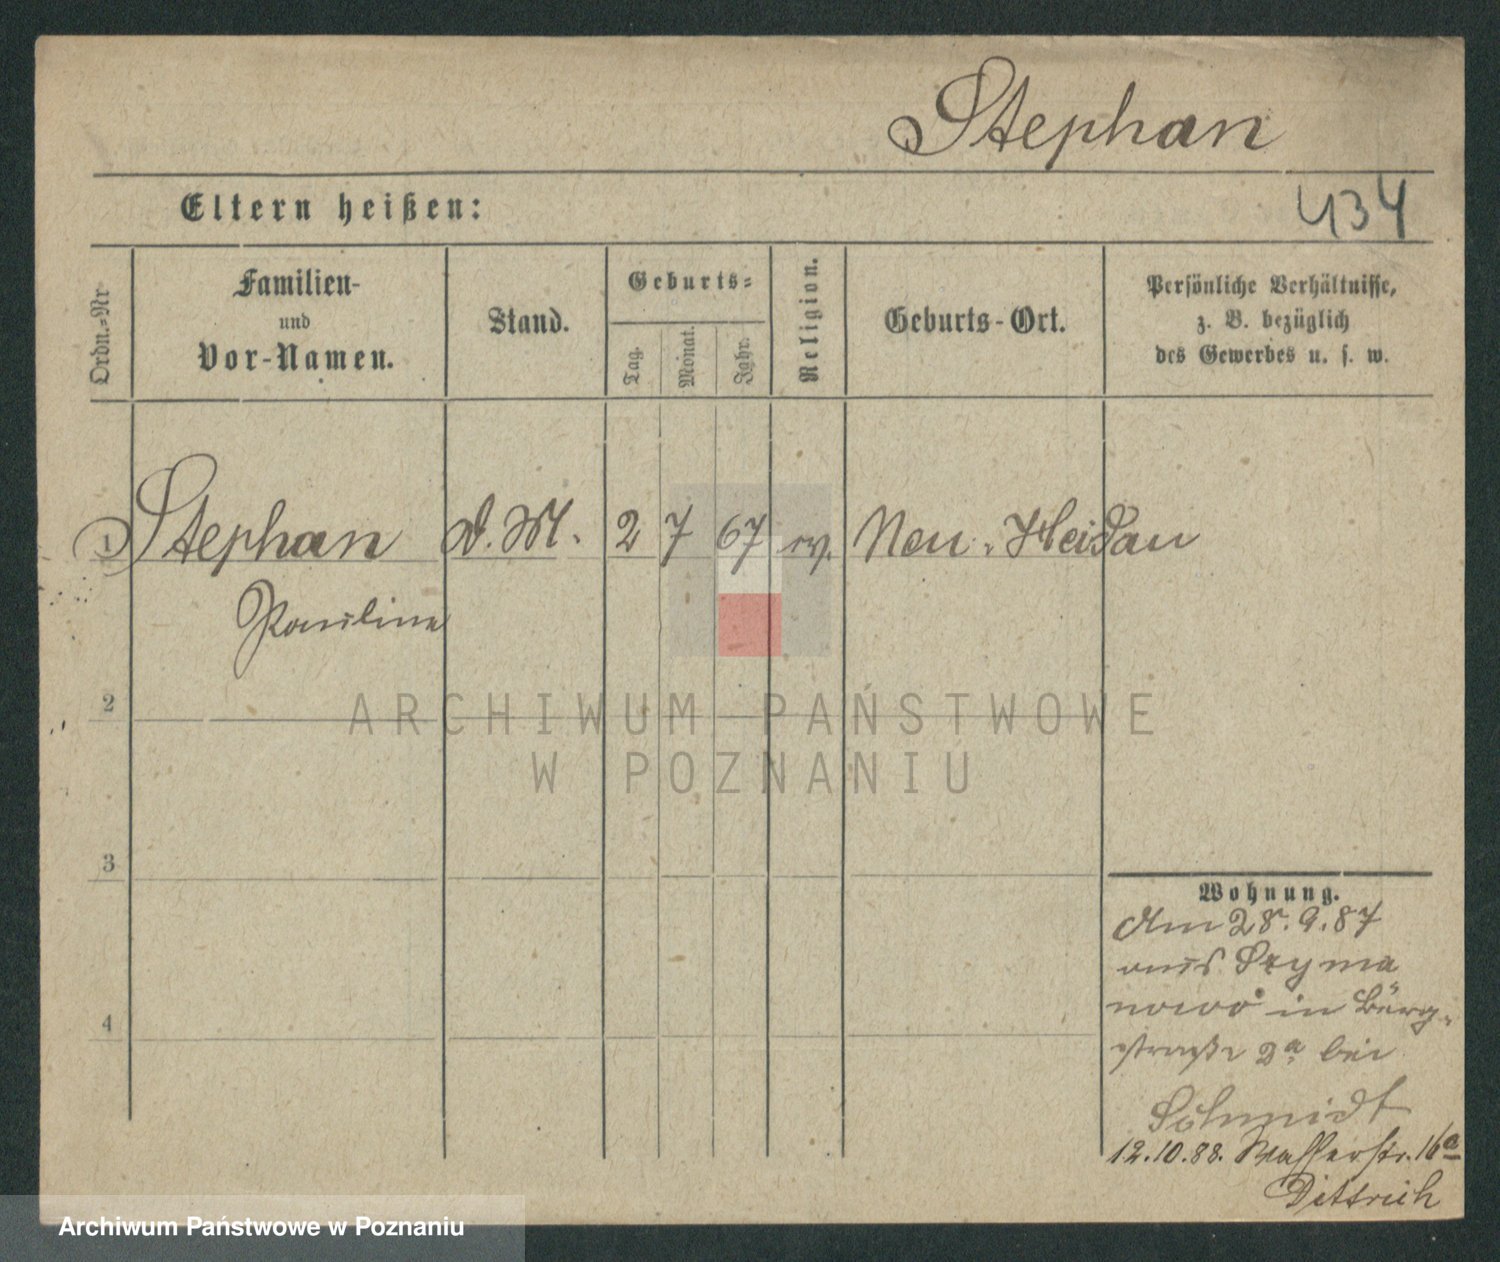 Stephan
Eltern heißen:
434
Ordn.-Nr
Familien-
und
Vor-Namen.
Stand.
Geburts-
Tag.
Monat.
Jahr.
Religion.
Geburts-Ort.
Persönliche Verhältnisse,
z. B. bezüglich
des Gewerbes u. s. w.
1 Stephan D. M. 2 7 67 ev. Neu-Heidau
Pauline
2
3
4
Wohnung.
Am 28.9.87
aus Szyma
nowo in Berg-
straße 2a bei
Schmidt
12.10.88. Wasserstr. 16a
Dittrich
ARCHIWUM PAŃSTWOWE
W POZNANIU
Archiwum Państwowe w Poznaniu